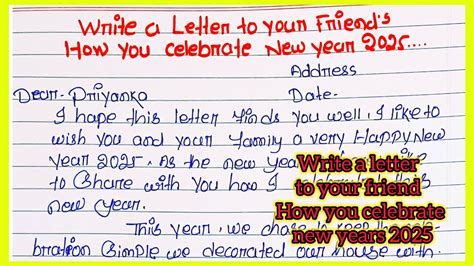 Write a Letter to your Friend's
How you celebrate New year 2025....
Address
Dear- Priyanka
Date-
I hape this letter finds you well, I like to
wish you and your family a very Happy New
year 2025. As the new year
to share with you how I
new year.
This year, we chose to keep the
bration simple we decorated our house with
Write a letter
to your friend
How you celebrate
new years 2025